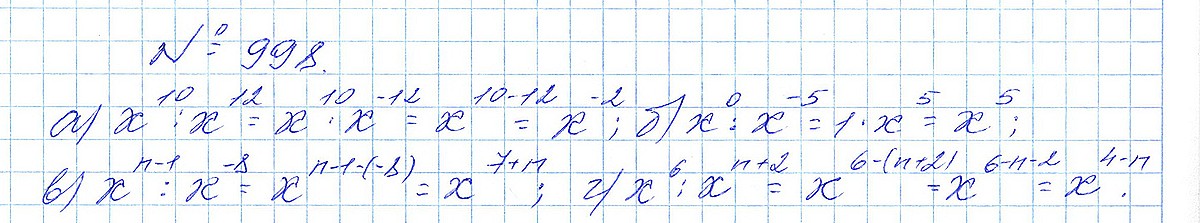 № 998.
а) x¹⁰ : x¹² = x¹⁰ · x⁻¹² = x¹⁰⁻¹² = x⁻² ; б) x⁰ : x⁻⁵ = 1 · x⁵ = x⁵ ;
в) xⁿ⁻¹ : x⁻⁸ = xⁿ⁻¹⁻⁽⁻⁸⁾ = x⁷⁺ⁿ ; г) x⁶ : xⁿ⁺² = x⁶⁻⁽ⁿ⁺²⁾ = x⁶⁻ⁿ⁻² = x⁴⁻ⁿ .